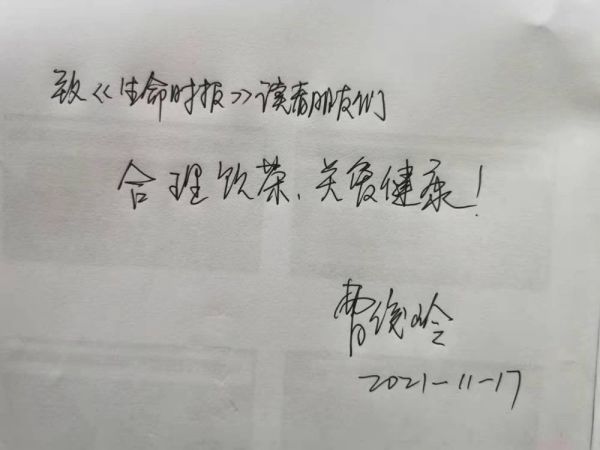 致《生命时报》读者朋友们
合理饮茶、关爱健康!
曹绕岭
2021-11-17